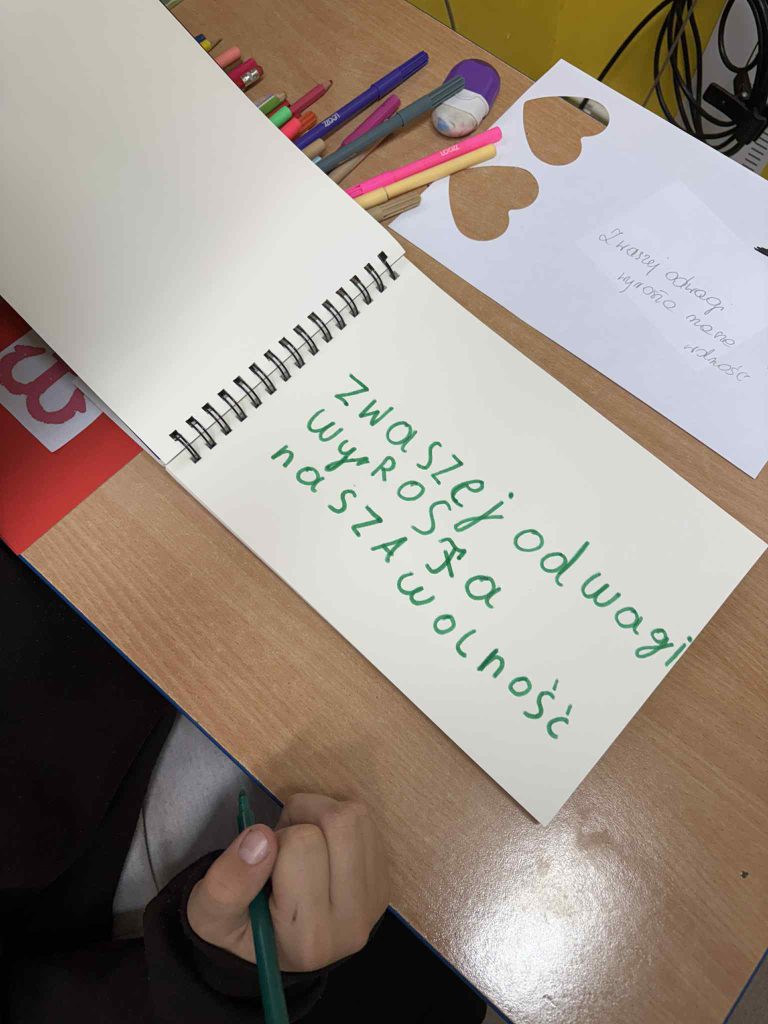 zwaszej odwagi
wyROSŁa
naszA wolność
Z waszej odwagi
wyrosła nasza
wolność